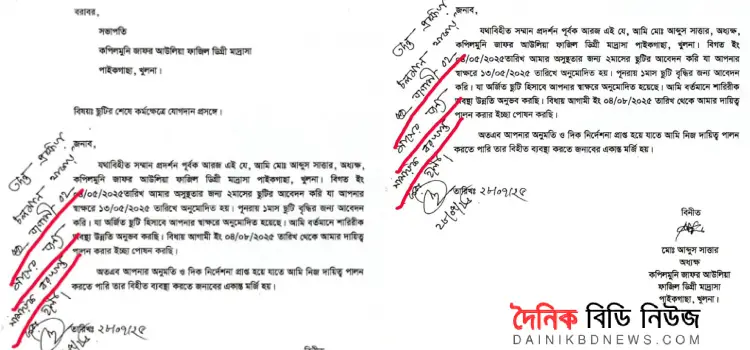 বরাবর,
সভাপতি
কপিলমুনি জাফর আউলিয়া ফাজিল ডিগ্রী মাদ্রাসা
পাইকগাছা, খুলনা।
বিষয়ঃ ছুটির শেষে কর্মক্ষেত্রে যোগদান প্রসঙ্গে।
জনাব,
যথাবিহীত সম্মান প্রদর্শন পূর্বক আরজ এই যে, আমি মোঃ আব্দুস সাত্তার, অধ্যক্ষ,
কপিলমুনি জাফর আউলিয়া ফাজিল ডিগ্রী মাদ্রাসা পাইকগাছা, খুলনা। বিগত ইং
০৪/০৫/২০২৫তারিখ আমার অসুস্থতার জন্য ২মাসের ছুটির আবেদন করি যা আপনার
স্বাক্ষরে ১৩/০৫/২০২৫ তারিখে অনুমোদিত হয়। পূনরায় ১মাস ছুটি বৃদ্ধির জন্য আবেদন
করি। যা অর্জিত ছুটি হিসাবে আপনার স্বাক্ষরে অনুমোদিত হয়েছে। আমি বর্তমানে শারিরীক
অবস্থা উন্নতি অনুভব করছি। বিধায় আগামী ইং ০৪/০৮/২০২৫ তারিখ থেকে আমার দায়িত্ব
পালন করার ইচ্ছা পোষন করছি।
অতএব আপনার অনুমতি ও দিক নির্দেশনা প্রাপ্ত হয়ে যাতে আমি নিজ দায়িত্ব পালন
করতে পারি তার বিহীত ব্যবস্থা করতে জনাবের একান্ত মর্জি হয়।
তারিখঃ ২৮/০৭/২৫
বিনীত
জনাব,
যথাবিহীত সম্মান প্রদর্শন পূর্বক আরজ এই যে, আমি মোঃ আব্দুস সাত্তার, অধ্যক্ষ,
কপিলমুনি জাফর আউলিয়া ফাজিল ডিগ্রী মাদ্রাসা পাইকগাছা, খুলনা। বিগত ইং
০৪/০৫/২০২৫তারিখ আমার অসুস্থতার জন্য ২মাসের ছুটির আবেদন করি যা আপনার
স্বাক্ষরে ১৩/০৫/২০২৫ তারিখে অনুমোদিত হয়। পূনরায় ১মাস ছুটি বৃদ্ধির জন্য আবেদন
করি। যা অর্জিত ছুটি হিসাবে আপনার স্বাক্ষরে অনুমোদিত হয়েছে। আমি বর্তমানে শারিরীক
অবস্থা উন্নতি অনুভব করছি। বিধায় আগামী ইং ০৪/০৮/২০২৫ তারিখ থেকে আমার দায়িত্ব
পালন করার ইচ্ছা পোষন করছি।
অতএব আপনার অনুমতি ও দিক নির্দেশনা প্রাপ্ত হয়ে যাতে আমি নিজ দায়িত্ব পালন
করতে পারি তার বিহীত ব্যবস্থা করতে জনাবের একান্ত মর্জি হয়।
তারিখঃ ২৮/০৭/২৫
বিনীত
মোঃ আব্দুস সাত্তার
অধ্যক্ষ
কপিলমুনি জাফর আউলিয়া
ফাজিল ডিগ্রী মাদ্রাসা
পাইকগাছা, খুলনা।
দৈনিক বিডি নিউজ
DAINIKBDNEWS.COM